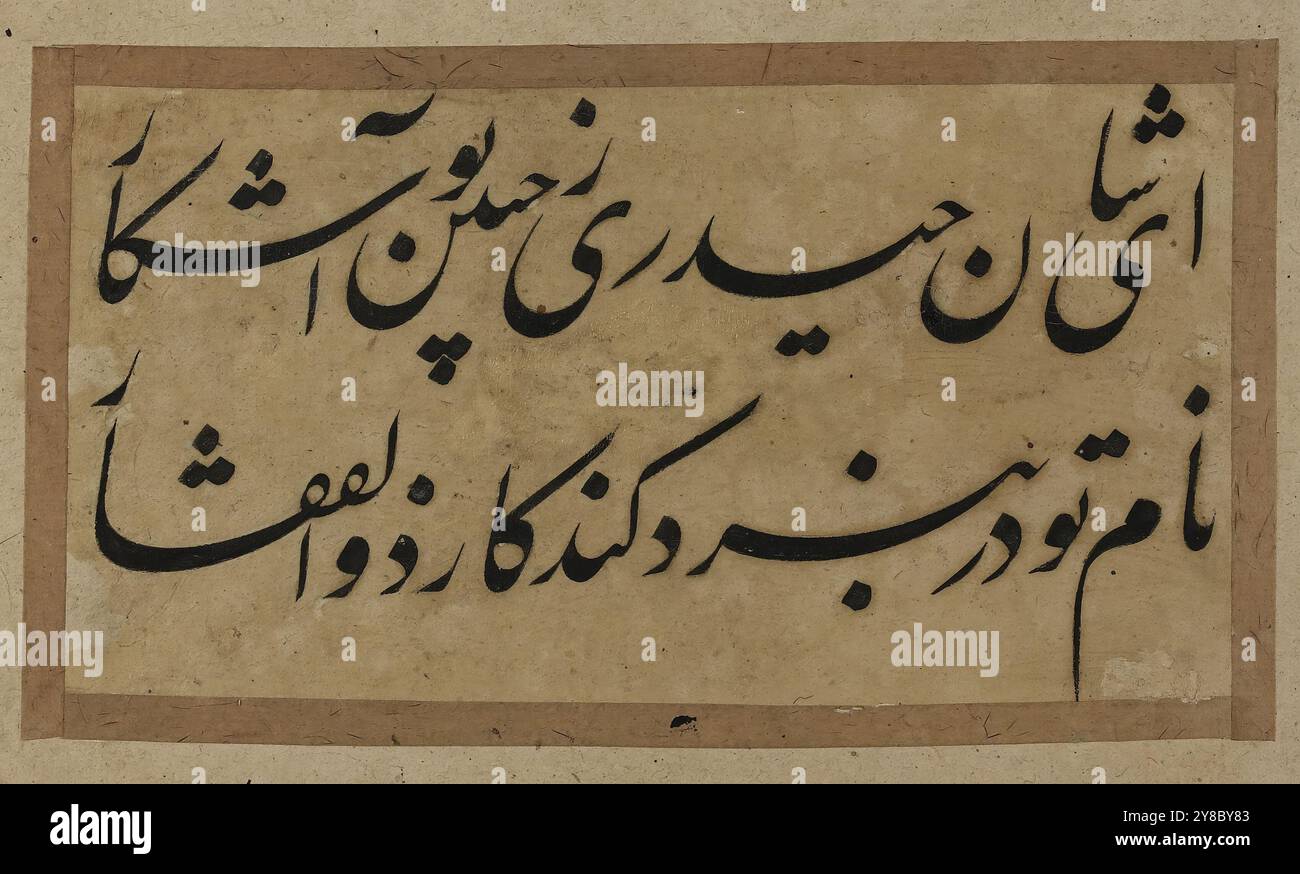 ای شان حیدری ز جبین تو آشکار
نام تو در نبرد کند کار ذوالفقار
alamy
alamy
alamy
alamy
alamy
alamy
Image ID: Y8BY83
www.alamy.com